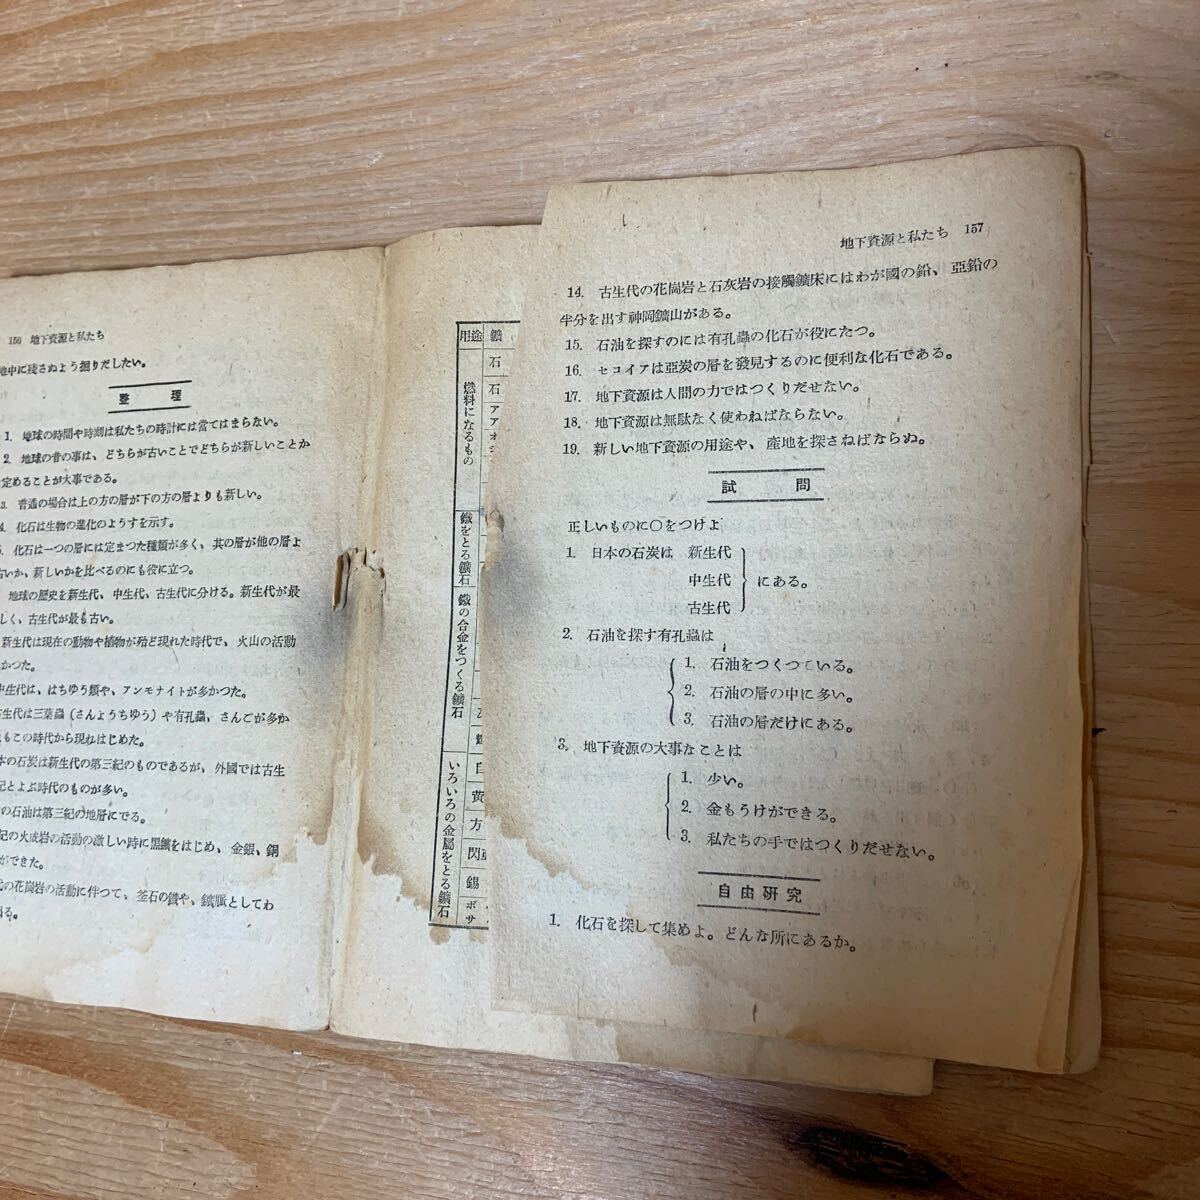 156 地下資源と私たち
地中に残さぬよう掘りだしたい。
整 理
1. 地球の時間や時刻は私たちの時計には當てはまらない。
2. 地球の昔の事は、どちらが古いことでどちらが新しいことか
定めることが大事である。
3. 普通の場合は上の方の層が下の方の層よりも新しい。
4. 化石は生物の進化のようすを示す。
5. 化石は一つの層には定まつた種類が多く、其の層が他の層よ
古いか、新しいかを比べるのにも役に立つ。
地球の歴史を新生代、中生代、古生代に分ける。新生代が最
しく、古生代が最も古い。
新生代は現在の動物や植物が殆ど現れた時代で、火山の活動
かつた。
中生代は、はちゆう類や、アンモナイトが多かつた。
古生代は三葉蟲(さんようちゆう)や有孔蟲，さんごが多か
もこの時代から現れはじめた。
本の石炭は新生代の第三紀のものであるが、外國では古生
紀とよぶ時代のものが多い。
の石油は第三紀の地層にでる。
紀の火成岩の活動の激しい時に黒鑛をはじめ、金銀、銅
ができた。
代の花崗岩の活動に伴つて、釜石の鐵や、鑛脈としてわ
る。
用途
燃料になるもの
鐵をとる鑛石
鐵の合金をつくる鑛石
いろいろの金屬をとる鑛石
鑛
石
石
ア
ア
自
黄
方
閃亞
錫
ボ
サ
地下資源と私たち 157
14. 古生代の花崗岩と石灰岩の接觸鑛床にはわが國の鉛、亞鉛の
半分を出す神岡鑛山がある。
15. 石油を探すのには有孔蟲の化石が役にたつ。
16. セコイアは亞炭の層を發見するのに便利な化石である。
17. 地下資源は人間の力ではつくりだせない。
18. 地下資源は無駄なく使わねばならない。
19. 新しい地下資源の用途や、産地を探さねばならぬ。
試 問
正しいものに○をつけよ
1. 日本の石炭は 新生代
中生代 にある。
古生代
2. 石油を探す有孔蟲は
1. 石油をつくつている。
2. 石油の層の中に多い。
3. 石油の層だけにある。
3. 地下資源の大事なことは
1. 少い。
2. 金もうけができる。
3. 私たちの手ではつくりだせない。
自由研究
1. 化石を探して集めよ。どんな所にあるか。